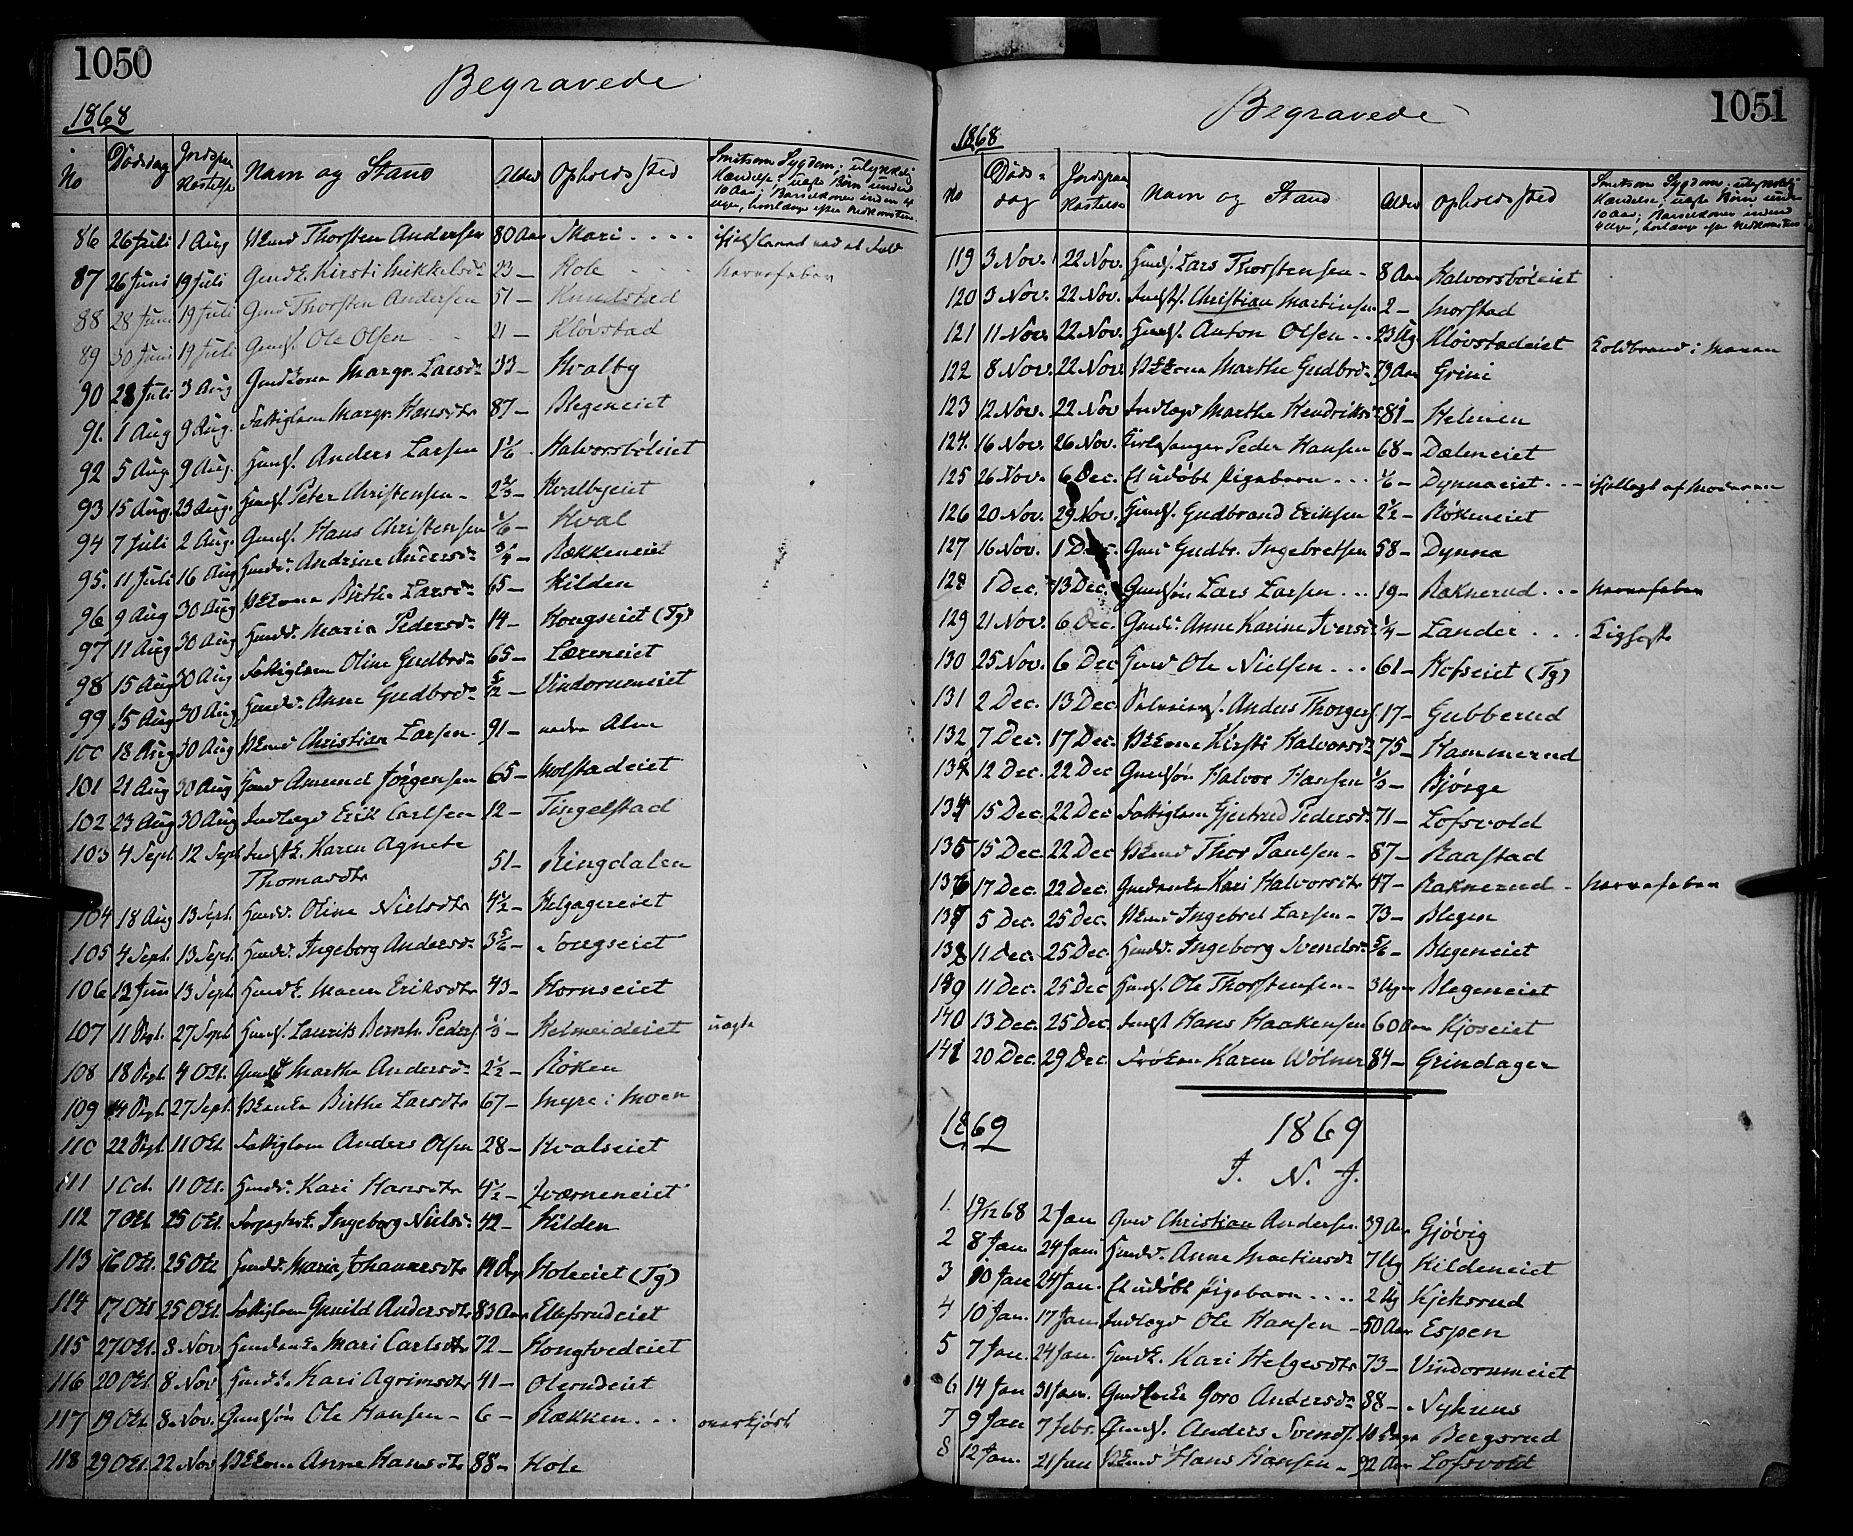 1050
Begravede
1868
No Dødsdag Jordspaa Kastelse Navn og Stand Alder Opholdssted Smitsom Sygdom; ulykkelig Hændelse; uægte Børn under 10 Aar; Barselkoner inden 4 Uger, hvorlænge efter Nedkomsten
86 26 Juli 1 Aug Thorsten Andersen 80 Aar Mari
87 26 Juni 19 Juli Kirsti Mikkelsdr 23 — Hole
88 28 Juni 19 Juli Gmd Thorsten Andersen 51 — Knudstad
89 30 Juni 19 Juli Ole Olsen 21 — Kløvstad
90 28 Juli 3 Aug Gmdkone Margr. Larsdr 33 — Hvalby
91. 1 Aug 9 Aug. Fattiglem Margr. Hansdtr 87 — Blegeneiet
92 5 Aug. 9 Aug. Husms. Anders Larsen 1 1/6 Halvorsbøleiet
93 15 Aug. 23 Aug. Husms. Peter Christensen 2 2/3 — Hvalbyeiet
94 7 Juli 2 Aug. Gmds. Hans Christensen 1/6 — Hval
95. 11 Juli 16 Aug Husmd. Andrine Andersdr 3/4 — Rækkeneiet
96 9 Aug 30 Aug Birthe Larsdr 65 — Kilden
97 11 Aug 30 Aug Husmd. Maria Pedersdr 14 — Hongseiet (Tg)
98 15 Aug 30 Aug Fattiglem Oline Gudbrdr 65 — Læreneiet
99 15 Aug 30 Aug Husmd. Anne Gudbrdr 5/12 — Vindorumeiet
100 18 Aug 30 Aug Christian Larsen 91 — nedre Alm
101 21 Aug 30 Aug Husmd Amund Jørgensen 65 — Molstadeiet
102 23 Aug 30 Aug Indlægs Erik Carlsen 12 — Tingelstad
103 4 Sept. 12 Sept. Karen Agnete
Thomasdtr 51 — Ringdalen
104 18 Aug 13 Sept. Husmd. Oline Nielsdtr 4 1/2 — Helgageneiet
105 4 Sept. 13 Sept. Husmd. Ingeborg Andersdr 3 5/6 — Songseiet
106 12 Juni 13 Sept. Maren Eriksdtr 43 — Hornseiet
107 11 Sept. 27 Sept. Husms. Laurits Bernh. Peders 1/3 — Helmeideiet uægte
108 18 Sept. 4 Okt. Marthe Andersdr 2 1/2 — Røken
109 14 Sept. 27 Sept. Birthe Larsdtr 67 — Myre i Moen
110 22 Sept. 11 Okt Fattiglem Anders Olsen 28 — Hvalseiet
111 1 Oct. 11 Okt. Husmd. Kari Hansdtr 4 1/2 — Sværneneiet
112 7 Okt. 25 Okt. Ingeborg Nielsdr 42 — Kilden
113 16 Okt. 25 Okt Husmd. Maria Johannesdtr 14 Dage Holeiet (Tg)
114 17 Okt 25 Okt. Fattiglem Gunild Andersdtr 83 Aar Elnfsrudeiet
115 27 Okt. 8 Nov Mari Carlsdtr 72 — Hongtvedeiet
116 20 Okt 8 Nov Kari Agrimsdtr 41 — Olerudeiet
117 19 Okt. 8 Nov. Gmdsøn Ole Hansen 6 — Rækken . . . overkjørt
118 29 Okt. 22 Nov Anne Hansdtr 88 — Hole
1051
Begravede
1868
No Dødsdag Jordspaa Kastelse Navn og Stand Alder Opholdssted Smitsom Sygdom; ulykkelig Hændelse; uægte Børn under 10 Aar; Barselkoner inden 4 Uger, hvorlænge efter Nedkomsten
119 3 Nov. 22 Nov. Husms. Lars Thorstensen 8 Aar Halvorsbøleiet
120 3 Nov. 22 Nov. Indsts. Christian Martinsen 2 — Morstad
121 11 Nov. 22 Nov. Husms. Anton Olsen . . 23 Ug. Kløvstadeiet Koldbrand i Maven
122 8 Nov. 22 Nov. Marthe Gudbrdr 79 Aar Grini
123 12 Nov. 22 Nov Indlægs Marthe Hendriksdr 81 — Helmen
124. 16 Nov. 26 Nov. Kirkesanger Peder Hansen 68 — Dæleneiet
125 26 Nov. 6 Dec. Et udøbt Pigebarn . . . 1/6 — Dynnaeiet . . . ihjellagt af Moderen
126 20 Nov. 29 Nov. Husms. Gudbrand Eriksen 2 1/2 — Røkeneiet
127 16 Nov. 1 Dec. Gmd Gudbr. Ingebretsen 58 — Dynna
128 1 Dec. 13 Dec. Gmdsøn Lars Larsen . . . 19 — Raknerud . . . Nervefeber
129 21 Nov. 6 Dec. Gmd. Anne Karine Iversdr 1/4 — Lander . . . Kighoste
130 25 Nov. 6 Dec Husmd Ole Nielsen . . . 61 — Hofseiet (Tg)
131 2 Dec. 13 Dec Anders Thorgers. 17 — Gubberud
132 7 Dec. 17 Dec. Kirsti Halvorsdr 75 — Hammerud
133 12 Dec. 22 Dec Gmdsøn Halvor Hansen 1/3 — Bjørge
134 15 Dec. 22 Dec Fattiglem Gjertrud Pedersdr 71 — Lofsvold
135 15 Dec. 22 Dec Thor Paulsen 87 — Raastad
136 17 Dec. 22 Dec. Gmdenke Kari Halvorsdtr 47 — Raknerud Nervefeber
137 5 Dec. 25 Dec. Ingebret Larsen 73 — Blegen
138 11 Dec. 25 Dec. Husmd. Ingeborg Svendsdr 5/6 — Blegeneiet
139 11 Dec. 25 Dec Husms. Ole Thorstensen 3 Uger Blegeneiet
140 13 Dec. 25 Dec. Indst Hans Haakensen 60 Aar Kjoseiet
141 20 Dec. 29 Dec Frøken Karen Wølner 84 — Grindager
1869 1869
I. N. J.
1. 19/12 68 2 Jan Gmd Christian Andersen 39 Aar Gjøvig
2 8 Jan. 24 Jan. Husmd. Anne Martinsdr 7 Ug Kildeneiet
3 10 Jan 24 Jan. Et udøbt Pigebarn . . . . 2 Ug Kjeksrud
4 10 Jan. 17 Jan Indlægs Ole Hansen 50 Aar Espen
5 7 Jan. 24 Jan. Kari Helgesdtr 73 — Vindorumeiet
6 14 Jan 31 Jan. Goro Andersdr 88 — Nyhuus
7 9 Jan 7 Febr. Gmds. Anders Svends. 10 Dage Bergsrud
8 12 Jan. 21 Jan Hans Hansen 92 Aar Lofsvold